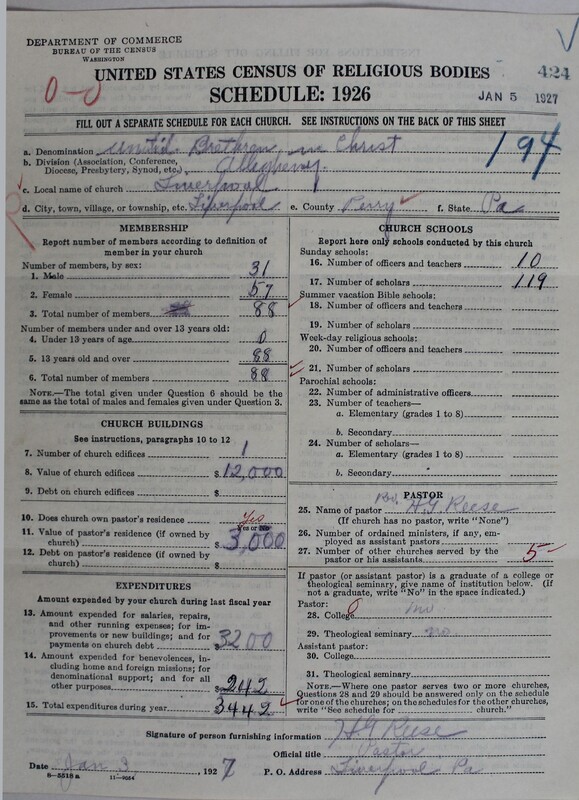 DEPARTMENT OF COMMERCE
BUREAU OF THE CENSUS
WASHINGTON
0-0
UNITED STATES CENSUS OF RELIGIOUS BODIES
424
SCHEDULE: 1926
JAN 5 1927
FILL OUT A SEPARATE SCHEDULE FOR EACH CHURCH. SEE INSTRUCTIONS ON THE BACK OF THIS SHEET
194
a. Denomination United Brethren in Christ
b. Division (Association, Conference,
Diocese, Presbytery, Synod, etc.) Allegheny
c. Local name of church Liverpool
d. City, town, village, or township, etc. Liverpool e. County Perry f. State Pa
MEMBERSHIP
Report number of members according to definition of
member in your church
Number of members, by sex:
1. Male 31
2. Female 57
3. Total number of members 88
Number of members under and over 13 years old:
4. Under 13 years of age 0
5. 13 years old and over 88
6. Total number of members 88
NOTE.—The total given under Question 6 should be
same as the total of males and females given under Question 3.
CHURCH BUILDINGS
See instructions, paragraphs 10 to 12
7. Number of church edifices 1
8. Value of church edifices $ 12,000
9. Debt on church edifices $
10. Does church own pastor's residence Yes
Yes or No
11. Value of pastor's residence (if owned by
church) $ 3,000
12. Debt on pastor's residence (if owned by
church) $
EXPENDITURES
Amount expended by your church during last fiscal year
13. Amount expended for salaries, repairs,
and other running expenses; for im-
provements or new buildings; and for
payments on church debt 3200
14. Amount expended for benevolences, in-
cluding home and foreign missions; for
denominational support; and for all
other purposes 242
15. Total expenditures during year 3442
CHURCH SCHOOLS
Report here only schools conducted by this church
Sunday schools:
16. Number of officers and teachers 10
17. Number of scholars 119
Summer vacation Bible schools:
18. Number of officers and teachers
19. Number of scholars
Week-day religious schools:
20. Number of officers and teachers
21. Number of scholars
Parochial schools:
22. Number of administrative officers
23. Number of teachers—
a. Elementary (grades 1 to 8)
b. Secondary
24. Number of scholars—
a. Elementary (grades 1 to 8)
b. Secondary
PASTOR
25. Name of pastor Rev. H G Reese
(If church has no pastor, write "None")
26. Number of ordained ministers, if any, em-
ployed as assistant pastors
27. Number of other churches served by the
pastor or his assistants 5
If pastor (or assistant pastor) is a graduate of a college or
theological seminary, give name of institution below. (If
not a graduate, write "No" in the space indicated.)
Pastor:
28. College no
29. Theological seminary no
Assistant pastor:
30. College
31. Theological seminary
NOTE.—Where one pastor serves two or more churches,
Questions 28 and 29 should be answered only on the schedule
for one of the churches; on the schedules for the other churches,
write "See schedule for church."
Signature of person furnishing information H G Reese
Official title Pastor
Date Jan 3, 1927 P. O. Address Liverpool Pa
8-5518a 11-9564